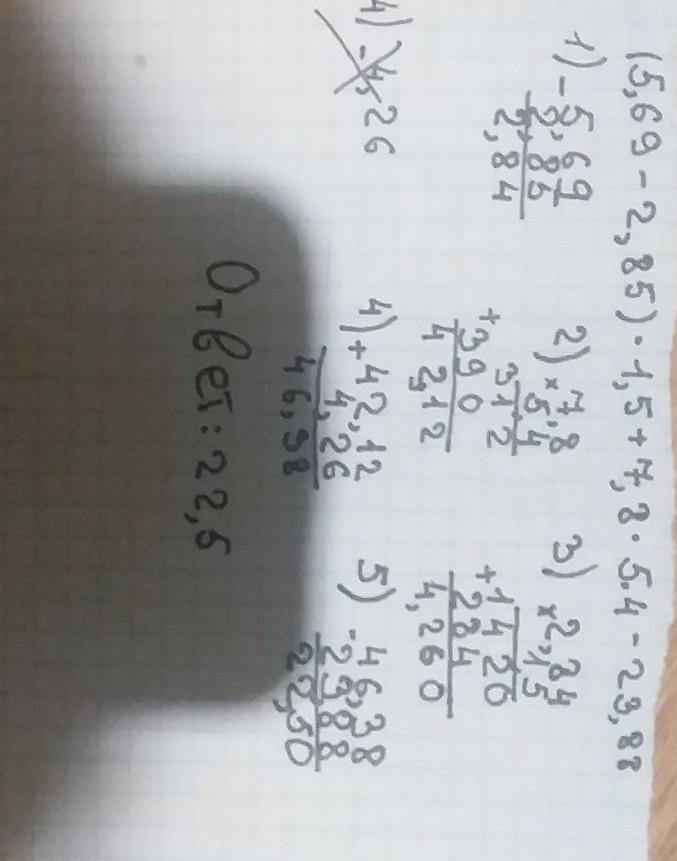 (5,69 - 2,85) · 1,5 + 7,8 · 5.4 - 23,88
1) - 5,69
2,85
2,84
2) × 7,8
5,4
312
+ 390
42,12
3) × 2,84
1,5
1420
+ 284
4,260
4) - 4,26
4) + 42,12
4,26
46,38
5) - 46,38
23,88
22,50
Ответ: 22,5